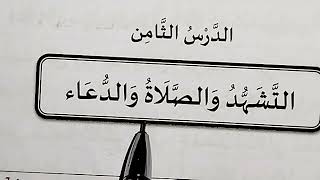 الدَّرْسُ الثَّامِن
التَّشَهُّدُ وَالصَّلَاةُ وَالدُّعَاء